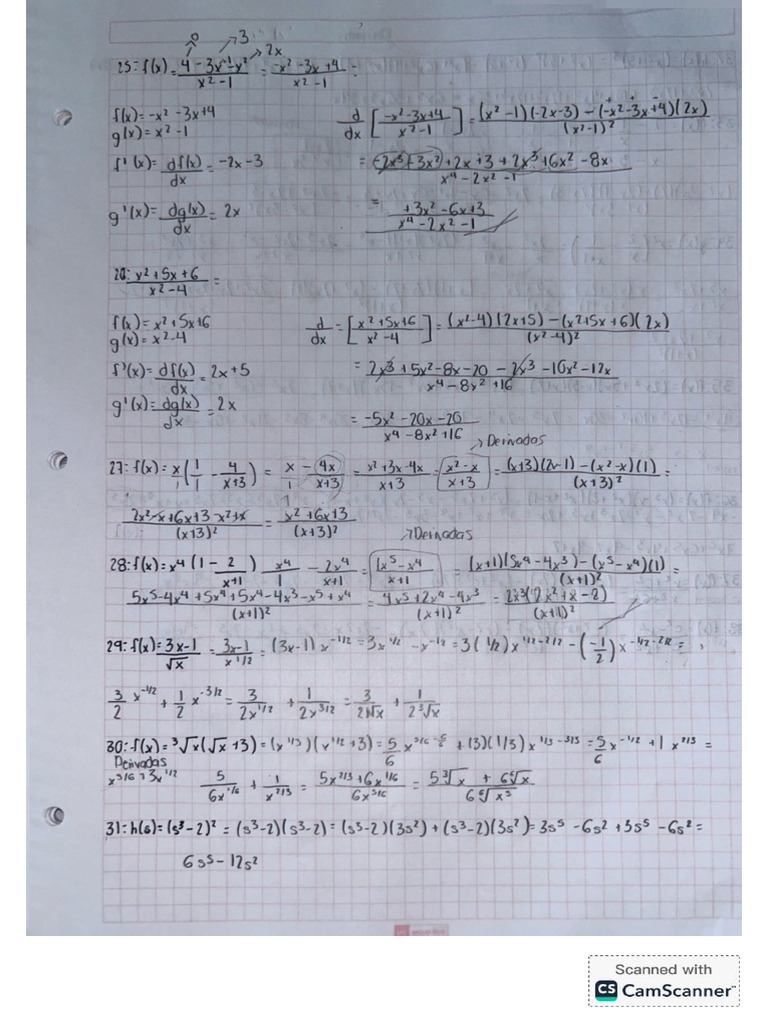 0 3 2x
25: f(x) = (4 - 3x - x²)/(x² - 1) = (-x² - 3x + 4)/(x² - 1) =
f(x) = -x² - 3x + 4
g(x) = x² - 1
d/dx [(-x² - 3x + 4)/(x² - 1)] = ((x² - 1)(-2x - 3) - (-x² - 3x + 4)(2x))/(x² - 1)²
f'(x) = df(x)/dx = -2x - 3
= (-2x³ + 3x² + 2x + 3 + 2x³ + 6x² - 8x)/(x⁴ - 2x² - 1)
g'(x) = dg(x)/dx = 2x
= (+3x² - 6x + 3)/(x⁴ - 2x² - 1)
26: (x² + 5x + 6)/(x² - 4) =
f(x) = x² + 5x + 6
g(x) = x² - 4
d/dx = [(x² + 5x + 6)/(x² - 4)] = ((x² - 4)(2x + 5) - (x² + 5x + 6)(2x))/(x² - 4)²
f'(x) = df(x)/dx = 2x + 5
= (2x³ + 5x² - 8x - 20 - 2x³ - 10x² - 12x)/(x⁴ - 8x² + 16)
g'(x) = dg(x)/dx = 2x
= (-5x² - 20x - 20)/(x⁴ - 8x² + 16)
→ Derivadas
27: f(x) = x/1 (1/1 - 4/(x+3)) = x/1 - 4x/(x+3) = (x² + 3x - 4x)/(x+3) = (x² - x)/(x+3) = ((x+3)(2x-1) - (x² - x)(1))/(x+3)² =
(2x² - x + 6x + 3 - x² + x)/(x+3)² = (x² + 6x + 3)/(x+3)²
→ Derivadas
28: f(x) = x⁴ (1 - 2/(x+1)) x⁴/1 - 2x⁴/(x+1) = (x⁵ - x⁴)/(x+1) = ((x+1)(5x⁴ - 4x³) - (x⁵ - x⁴)(1))/(x+1)² =
(5x⁵ - 4x⁴ + 5x⁴ + 5x⁴ - 4x³ - x⁵ + x⁴)/(x+1)² = (4x⁵ + 2x⁴ - 4x³)/(x+1)² = 2x³(2x² + x - 2)/(x+1)²
29: f(x) = (3x - 1)/√x = (3x - 1)/x^1/2 = (3x - 1) x^-1/2 = 3x^1/2 - x^-1/2 = 3(1/2)x^1/2-2/2 - (-1/2) x^-1/2-2/2 =
3/2 x^-1/2 + 1/2 x^-3/2 = 3/2x^1/2 + 1/2x^3/2 = 3/2√x + 1/2³√x
30: f(x) = ³√x(√x + 3) = (x^1/3)(x^1/2 + 3) = 5/6 x^5/6-6/6 + (3)(1/3) x^1/3-3/3 = 5/6 x^-1/2 + 1 x^2/3 =
Derivadas
x^5/6 + 3x^1/2 5/6x^1/6 + 1/x^2/3 = (5x^2/3 + 6x^1/6)/6x^5/6 = (5³√x + 6⁶√x)/6⁶√x⁵
31: h(s) = (s³ - 2)² = (s³ - 2)(s³ - 2) = (s³ - 2)(3s²) + (s³ - 2)(3s²) = 3s⁵ - 6s² + 3s⁵ - 6s² =
6s⁵ - 12s²
Scanned with
CS CamScanner™